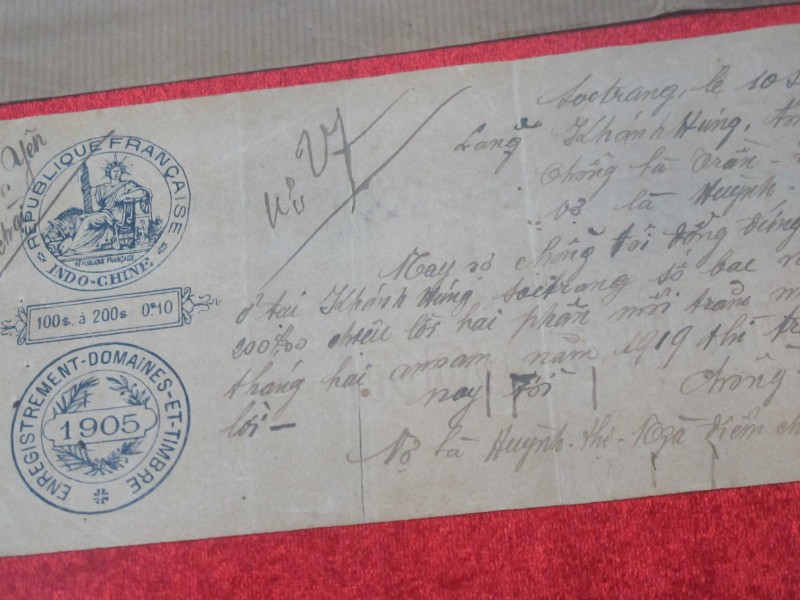 RÉPUBLIQUE FRANÇAISE
RÉPUBLIQUE FRANÇAISE
INDO-CHINE
100s. à 200s 0$10
ENREGISTREMENT-DOMAINES-ET-TIMBRE
1905
Yên
No V7
Soctrang, le 10
Lang Khánh Hưng,
Chồng là Trần
vợ là Huỳnh
Nay vợ chồng tôi đồng đứng
ở tại Khánh Hưng, Soctrang số bạc
200$00 chịu lời hai phân mỗi tháng
tháng hai annam năm 1919 thì
nay tôi Chồng
lời —
Vợ là Huỳnh-thị-Ngà điểm